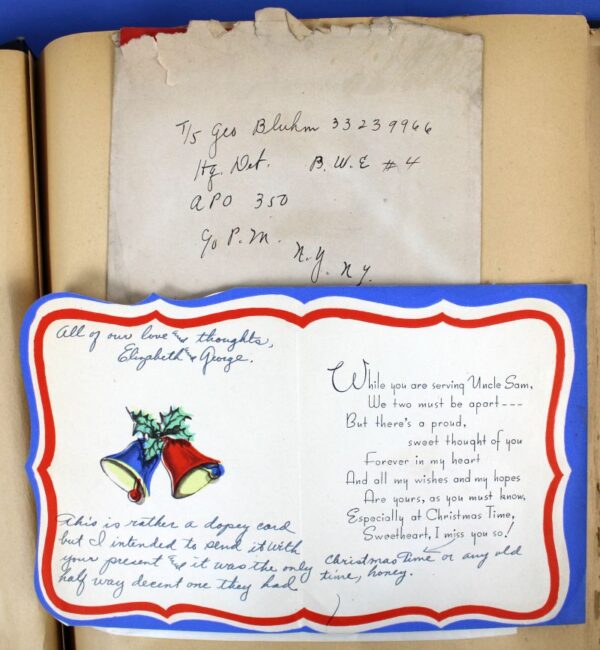 T/5 Geo Bluhm 33239966
Hq. Det. B.W.E #4
APO 350
c/o P.M.
N.Y. N.Y.
All of our love & thoughts,
Elizabeth & George.
This is rather a dopey card
but I intended to send it with
your present & it was the only
half way decent one they had
While you are serving Uncle Sam,
We two must be apart---
But there's a proud,
sweet thought of you
Forever in my heart
And all my wishes and my hopes
Are yours, as you must know,
Especially at Christmas Time,
Sweetheart, I miss you so!
Christmas Time or any old
time, honey.